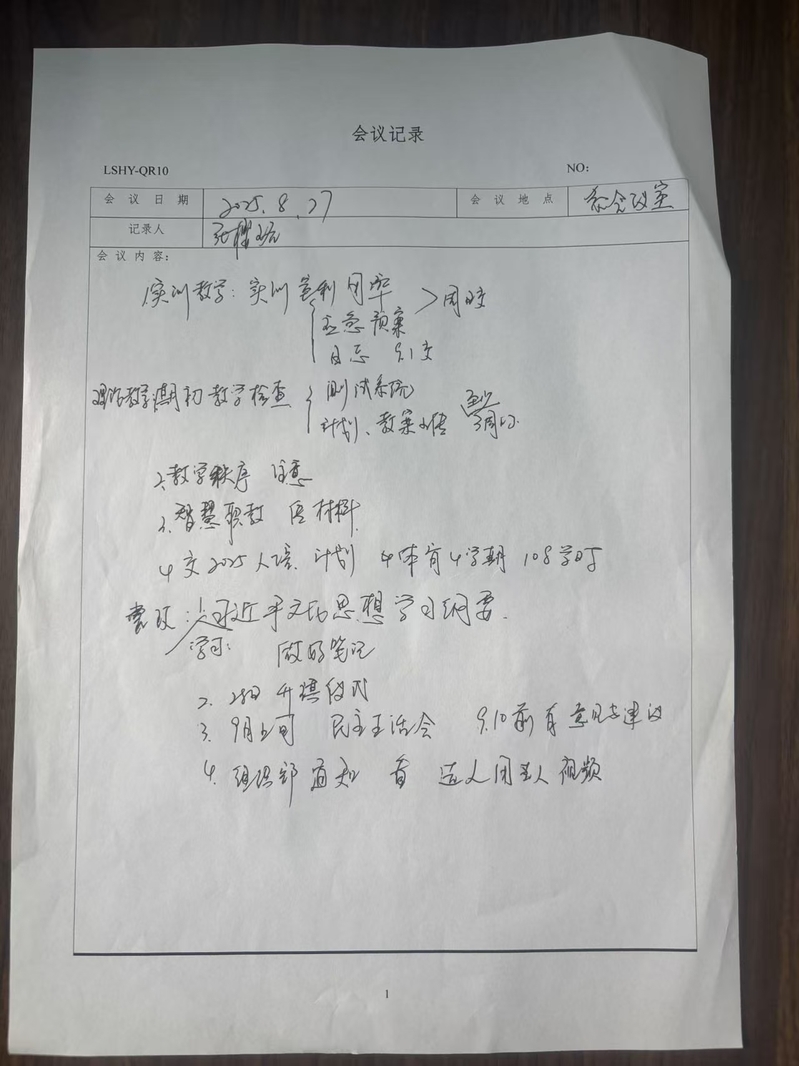 会议记录
LSHY-QR10 NO：
会议日期 2025.8.27 会议地点 系会议室
记录人 张
会议内容：
1.实训教学：实训 利用率 周日交
应急预案
日志 9.1交
理论教学期初教学检查 测试系统
计划、教案 周日
2、教学秩序 注意
3、智慧职教 传材料
4 交2025人培、计划 体育4学期 108学时
党政：1.习近平文化思想学习纲要
学习： 做好笔记
2. 升旗仪式
3. 9月上旬 民主生活会 9.10前有意见与建议
4. 组织部通知 看 选人用人视频
1